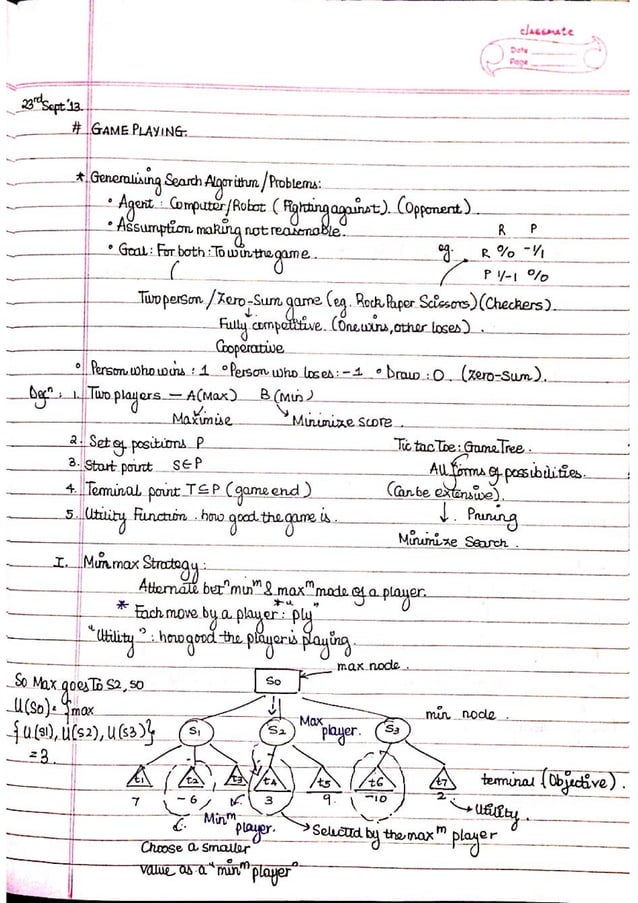 classmate
Date
Page
23rd Sept '13.
# GAME PLAYING.
* Generalising Search Algorithm / Problems:
• Agent : Computer/Robot (Fighting against). (Opponent)
• Assumption making not reasonable.
R P
• Goal : For both : To win the game.
eg. R 0/0 -1/1
P 1/-1 0/0
Two person / Zero-Sum game (eg. Rock Paper Scissors) (Checkers).
Fully competitive. (One wins, other loses).
Cooperative
• Person who wins : 1 • Person who loses : -1 • Draw : 0. (Zero-Sum).
Defn : 1. Two players — A(Max) B (Min)
Maximise Minimize score.
2. Set of positions P Tic tac Toe : Game Tree.
3. Start point S∈P All forms of possibilities.
4. Terminal point T⊆P (game end) (Can be extensive).
5. Utility Function : how good the game is. ↓. Pruning
Minimize Search.
I. Min max Strategy :
Alternate betn minm & maxm mode of a player.
* Each move by a player : * "ply"
"Utility" : how good the player is playing.
max node.
So Max goes to S2, so S0
U(S0) = {max Max player. min node.
{U(S1), U(S2), U(S3)}} S1 S2 S3
= 3.
t1 t2 t3 t4 t5 t6 t7 terminal (Objective).
7 -6 3 9 -10 2 Utility.
Minm player. Selected by the maxm player
Choose a smaller
value as a "minm player"